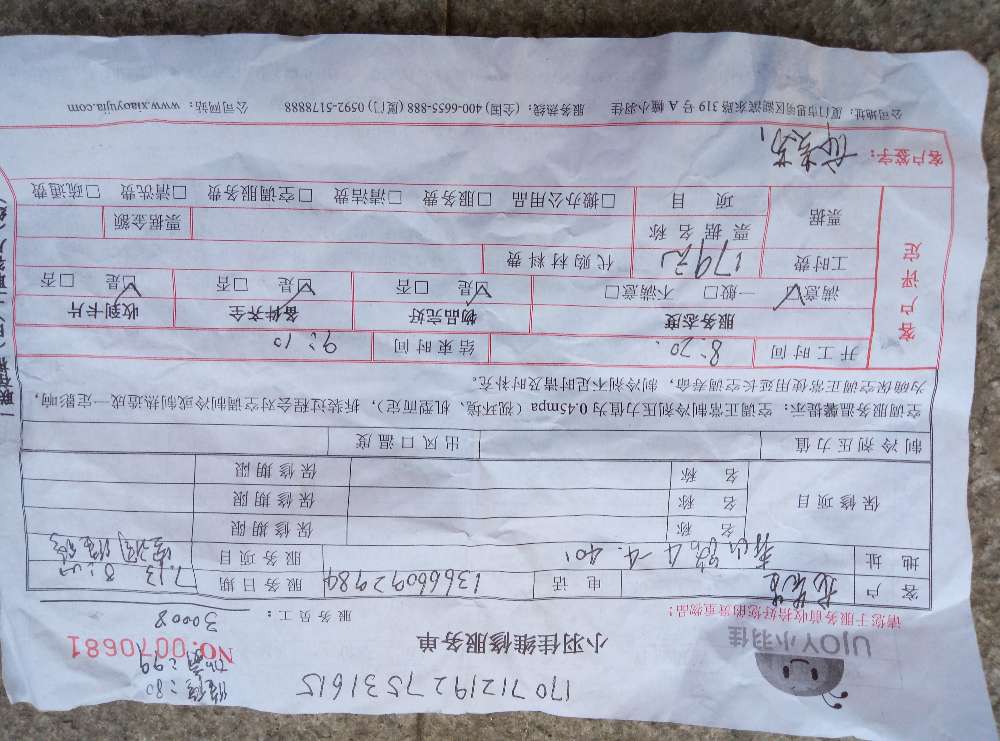 1707121927531615
维修:80
加氟:99
UJOY小羽佳
小羽佳维修服务单
No.0070681
请您于服务前收拾好您的贵重物品!
服务员工: 30008
客 户 电 话 13666092984 服务日期 7.13
地 址 4-401 服务项目 空调维修
保修项目 名 称 保修期限
名 称 保修期限
名 称 保修期限
制冷剂压力值 出风口温度
空调服务温馨提示:空调正常制冷剂压力值为0.45mpa(视环境、机型而定),拆装过程会对空调制冷或制热造成一定影响,
为确保空调正常使用延长空调寿命,制冷剂不足时请及时补充。
客户评定
开工时间 8:20. 结束时间 9:10
服务态度 物品完好 备件齐全 收到卡片
满意☑ 一般□ 不满意□ ☑是 □否 ☑是 □否 ☑是 □否
工时费 179元 代购材料费
票据 票据名称 票据金额
项 目 □搬办公用品 □服务费 □清洁费 □空调服务费 □清洗费 □疏通费
客户签字:
公司地址:厦门市思明区湖滨东路 319 号 A 幢小羽佳 服务热线:(全国) 400-6655-888 (厦门) 0592-5178888 公司网站:www.xiaoyujia.com